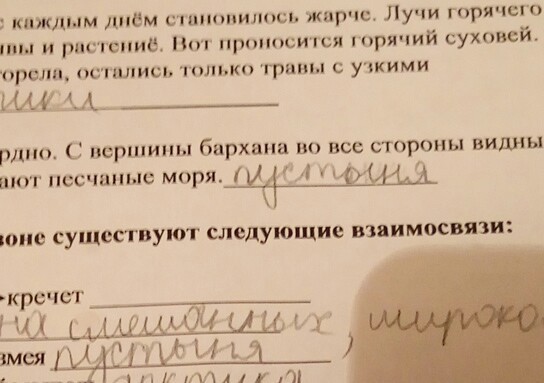 с каждым днём становилось жарче. Лучи горячего
ивы и растениё. Вот проносится горячий суховей.
горела, остались только травы с узкими
рдно. С вершины бархана во все стороны видны
ают песчаные моря. пустыня
зоне существуют следующие взаимосвязи:
кречет
на смешанных, широко
змея пустыня
арктика